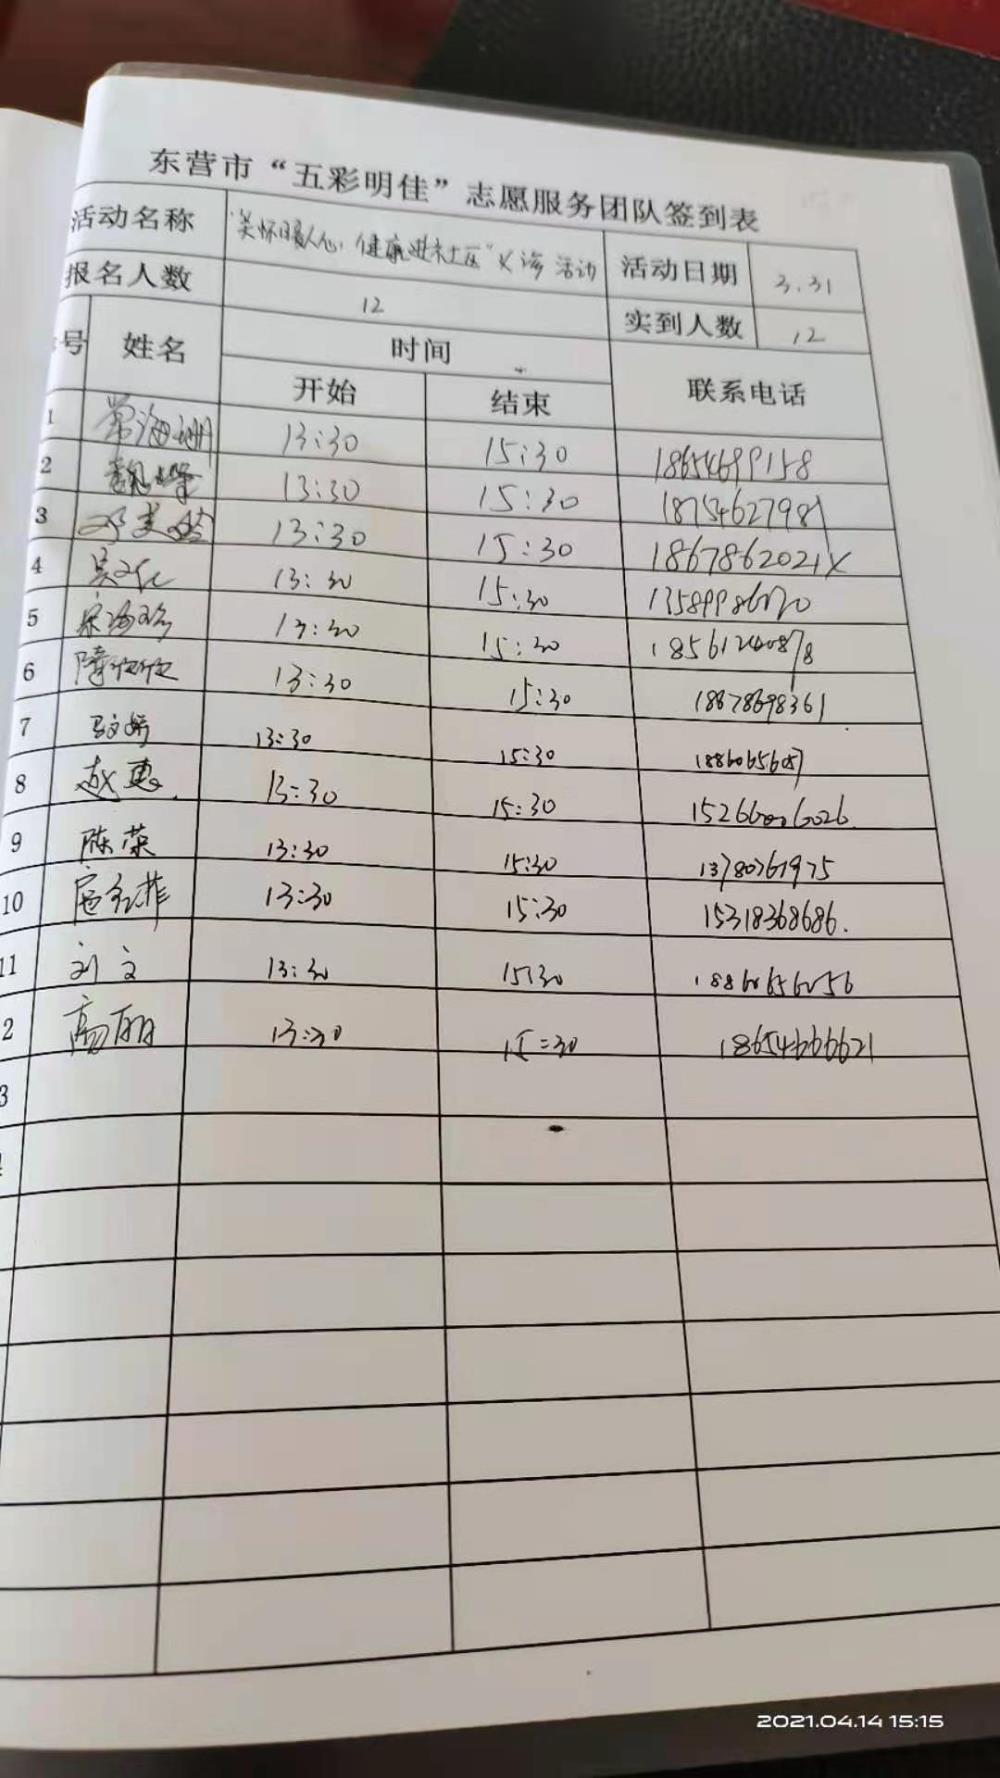 东营市“五彩明佳”志愿服务团队签到表
活动名称 “关怀暖人心,健康进社区”义诊活动 活动日期 3.31
报名人数 12 实到人数 12
号 姓名 时间 联系电话
开始 结束
1 常海珊 13:30 15:30 18654699158
2 13:30 15:30 18754627981
3 邓美 13:30 15:30 1867862021X
4 吴文化 13:30 15:30
5 13:30 15:30 18561240878
6 隋欣欣 13:30 15:30 18678698361
7 马文娇 13:30 15:30
8 赵惠 13:30 15:30
9 陈荣 13:30 15:30 13780761975
10 扈红菲 13:30 15:30 15318368686.
11 刘文 13:30 15:30 18860656056
2 高丽 13:30 15:30 18654666621
3
2021.04.14 15:15